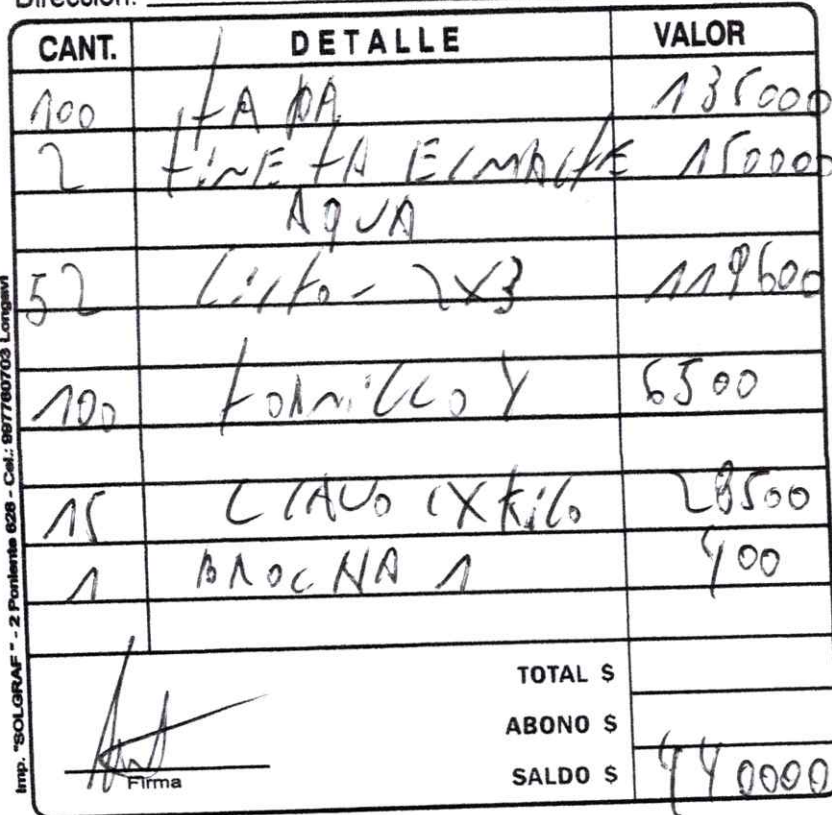 Dirección:
CANT. DETALLE VALOR
100 tA pA 135000
2 tinE tA E/mAltE 150000
AqUA
52 listo - 2x3 119600
100 tornillo Y 6500
15 ClAVo x kilo 28500
1 BROCHA 1 400
TOTAL $
ABONO $
SALDO $ 440000
Firma
Imp. "SOLGRAF" - 2 Poniente 628 - Cel.: 997780703 Longaví